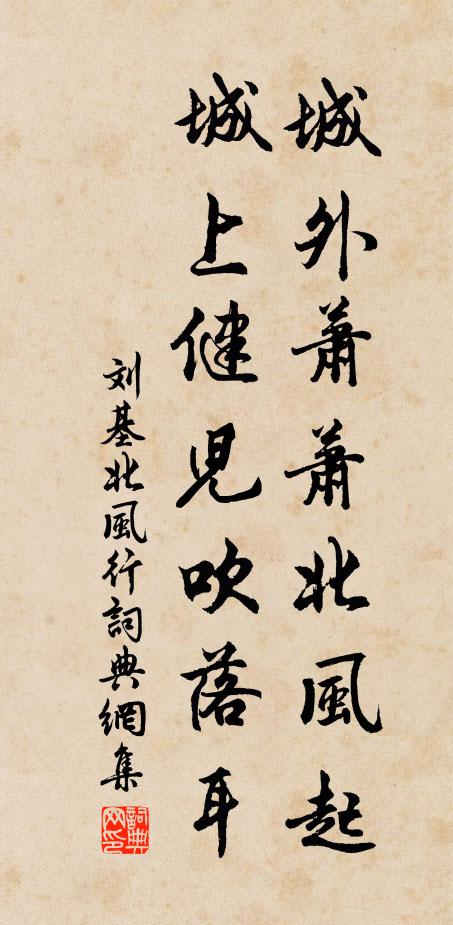 城外蕭蕭北風起
城上健兒吹落耳
刘基北風行詞典網集
詞典网印